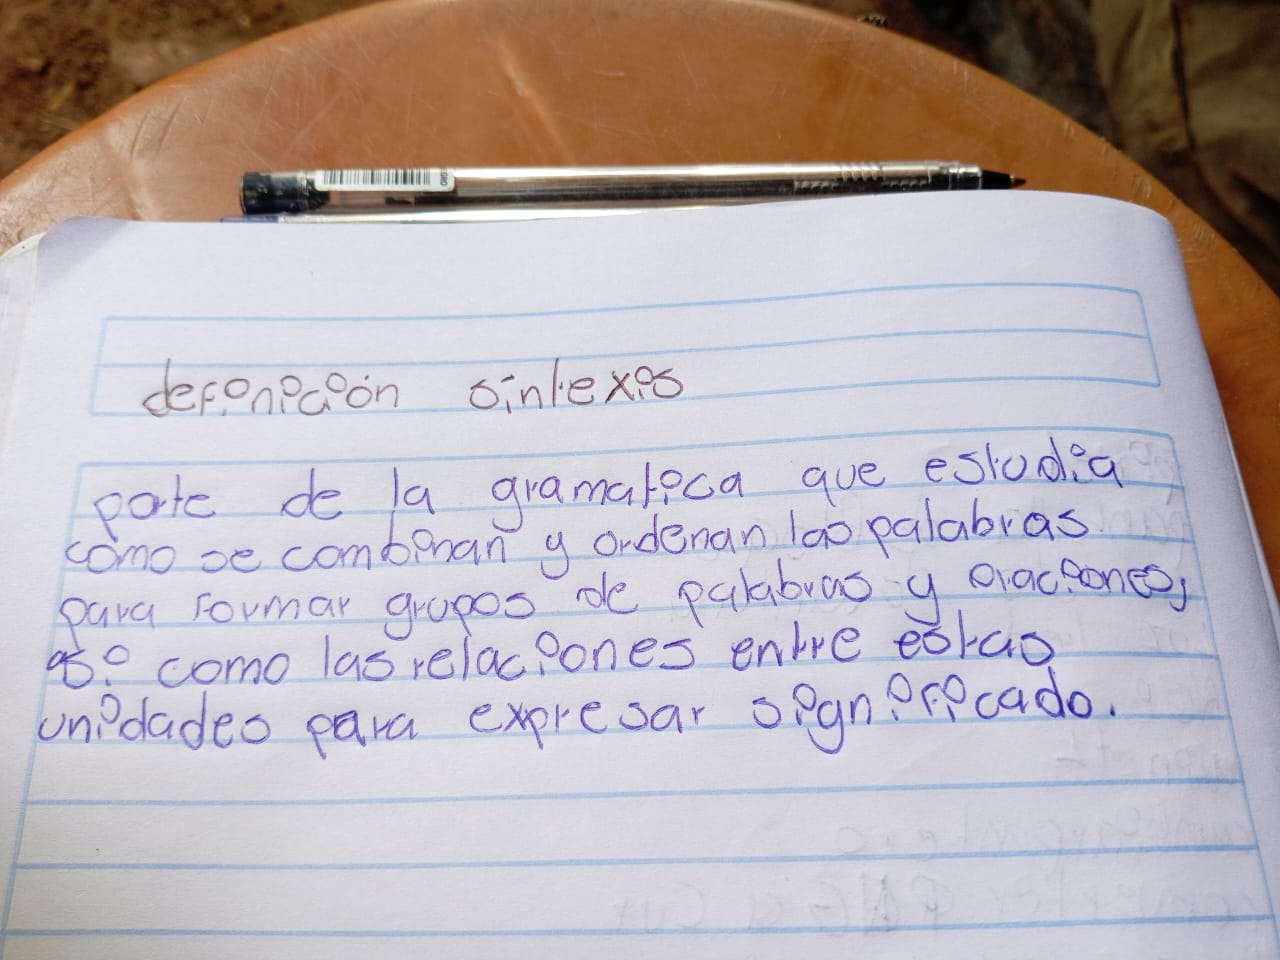 definición sintexis
parte de la gramatica que estudia
como se combinan y ordenan las palabras
para formar grupos de palabras y oraciones,
asi como las relaciones entre estas
unidades para expresar significado.